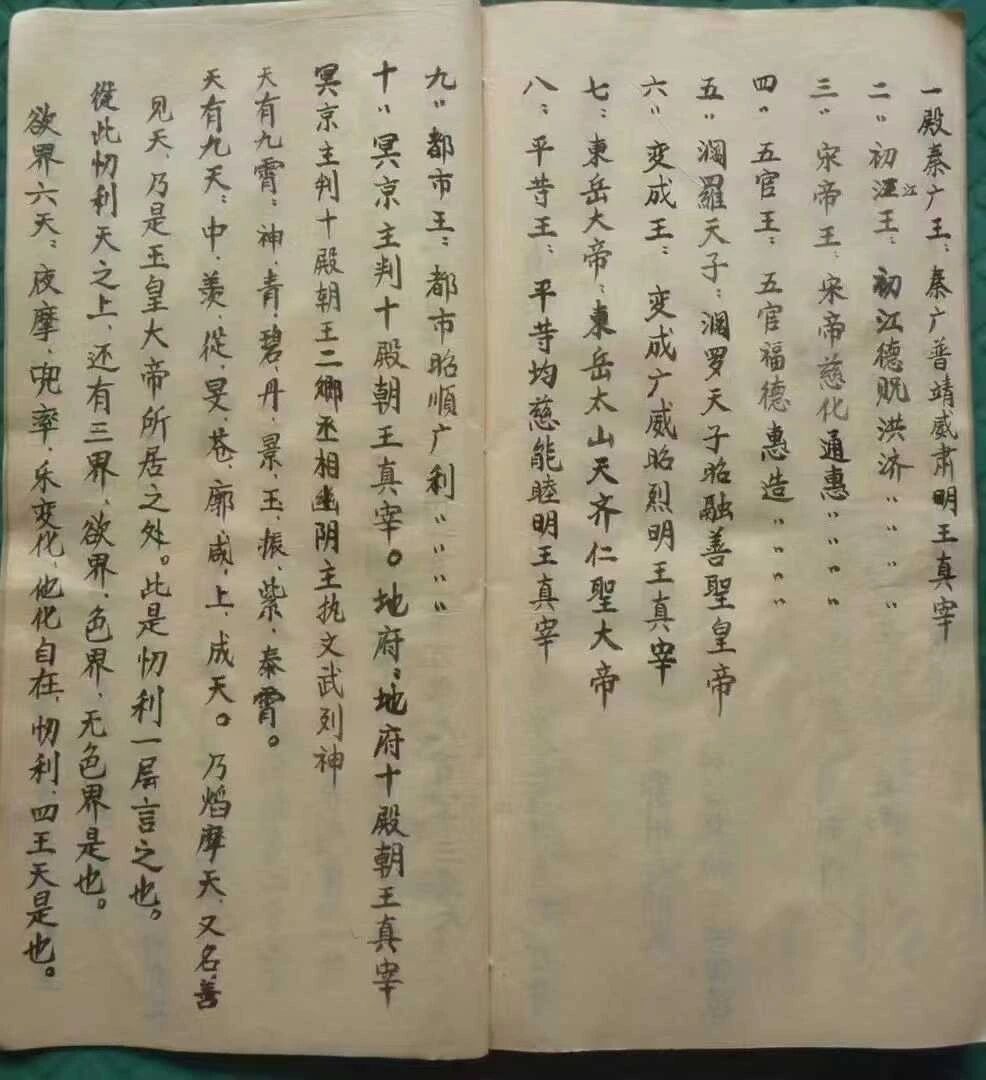 一殿秦广王：秦广普靖威肃明王真宰
二〃初江王：初江德贶洪济〃〃〃〃
三〃宋帝王：宋帝慈化通惠〃〃〃〃
四〃五官王：五官福德惠造〃〃〃〃
五〃渊羅天子：渊罗天子昭融善聖皇帝
六〃变成王：变成广威昭烈明王真宰
七：東岳大帝：東岳太山天齐仁聖大帝
八：平䓁王：平䓁均慈能睦明王真宰
九〃都市王：都市昭順广利〃〃〃〃
十〃冥京主判十殿朝王真宰。地府：地府十殿朝王真宰
冥京主判十殿朝王二卿丞相幽阴主执文武列神
天有九霄：神、青、碧、丹、景、玉、振、紫、泰霄。
天有九天：中、羡、從、旻、苍、廓、咸、上、成天。乃熖摩天、又名善
见天、乃是玉皇大帝所居之处。此是忉利一层言之也。
從此忉利天之上、还有三界、欲界、色界、无色界是也。
欲界六天：夜摩、兜率、乐变化、他化自在、忉利、四王天是也。